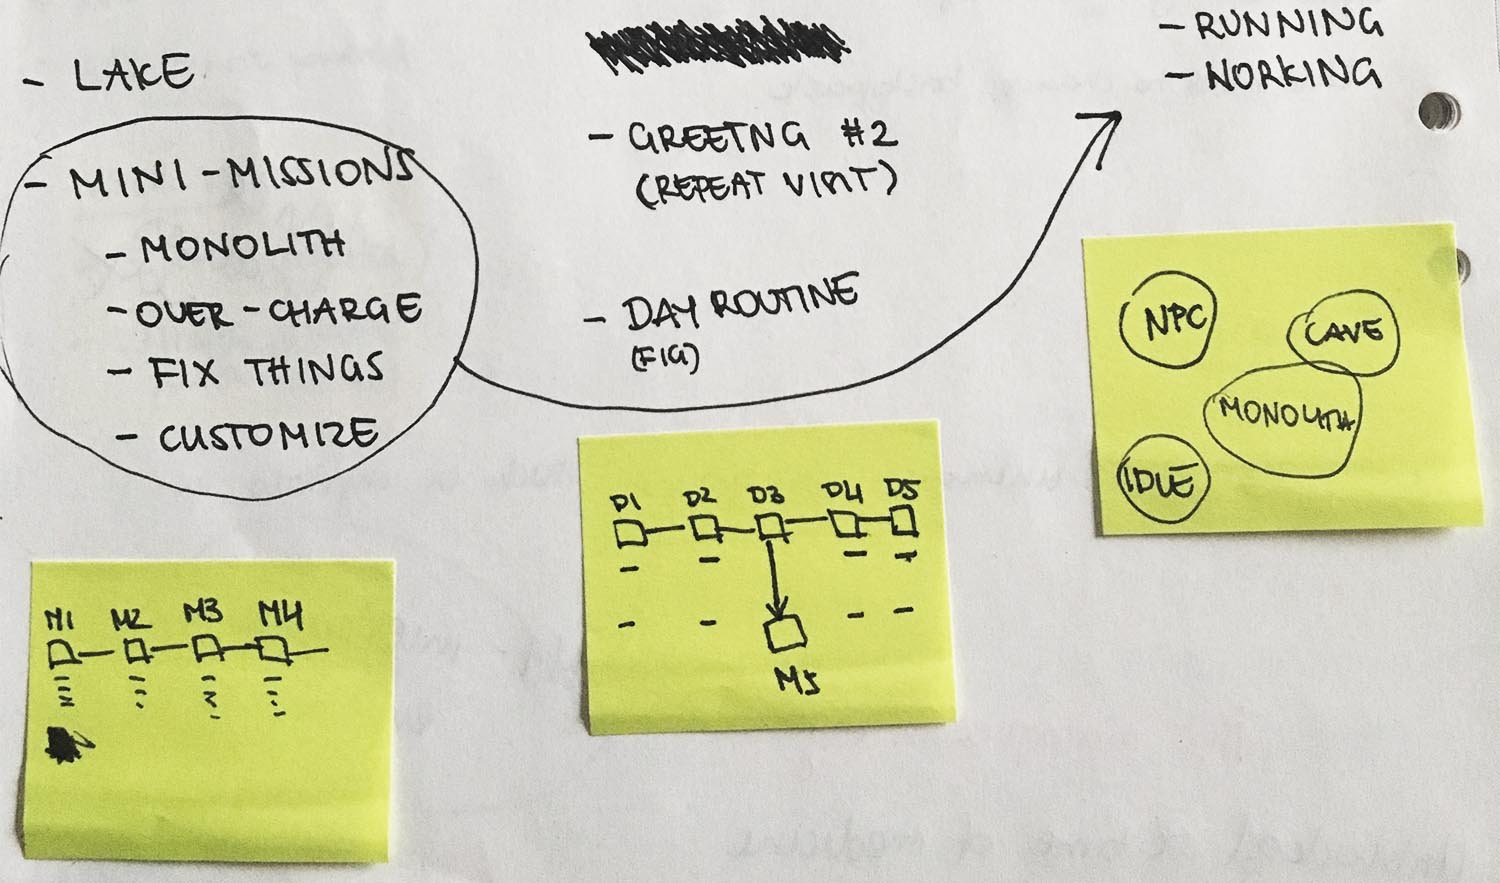 - LAKE
- MINI-MISSIONS
- MONOLITH
- OVER-CHARGE
- FIX THINGS
- CUSTOMIZE
- GREETNG #2
(REPEAT VISIT)
- DAY ROUTINE
(FIG)
- RUNNING
- WORKING
M1 M2 M3 M4
D1 D2 D3 D4 D5
M5
NPC
CAVE
MONOLITH
IDLE